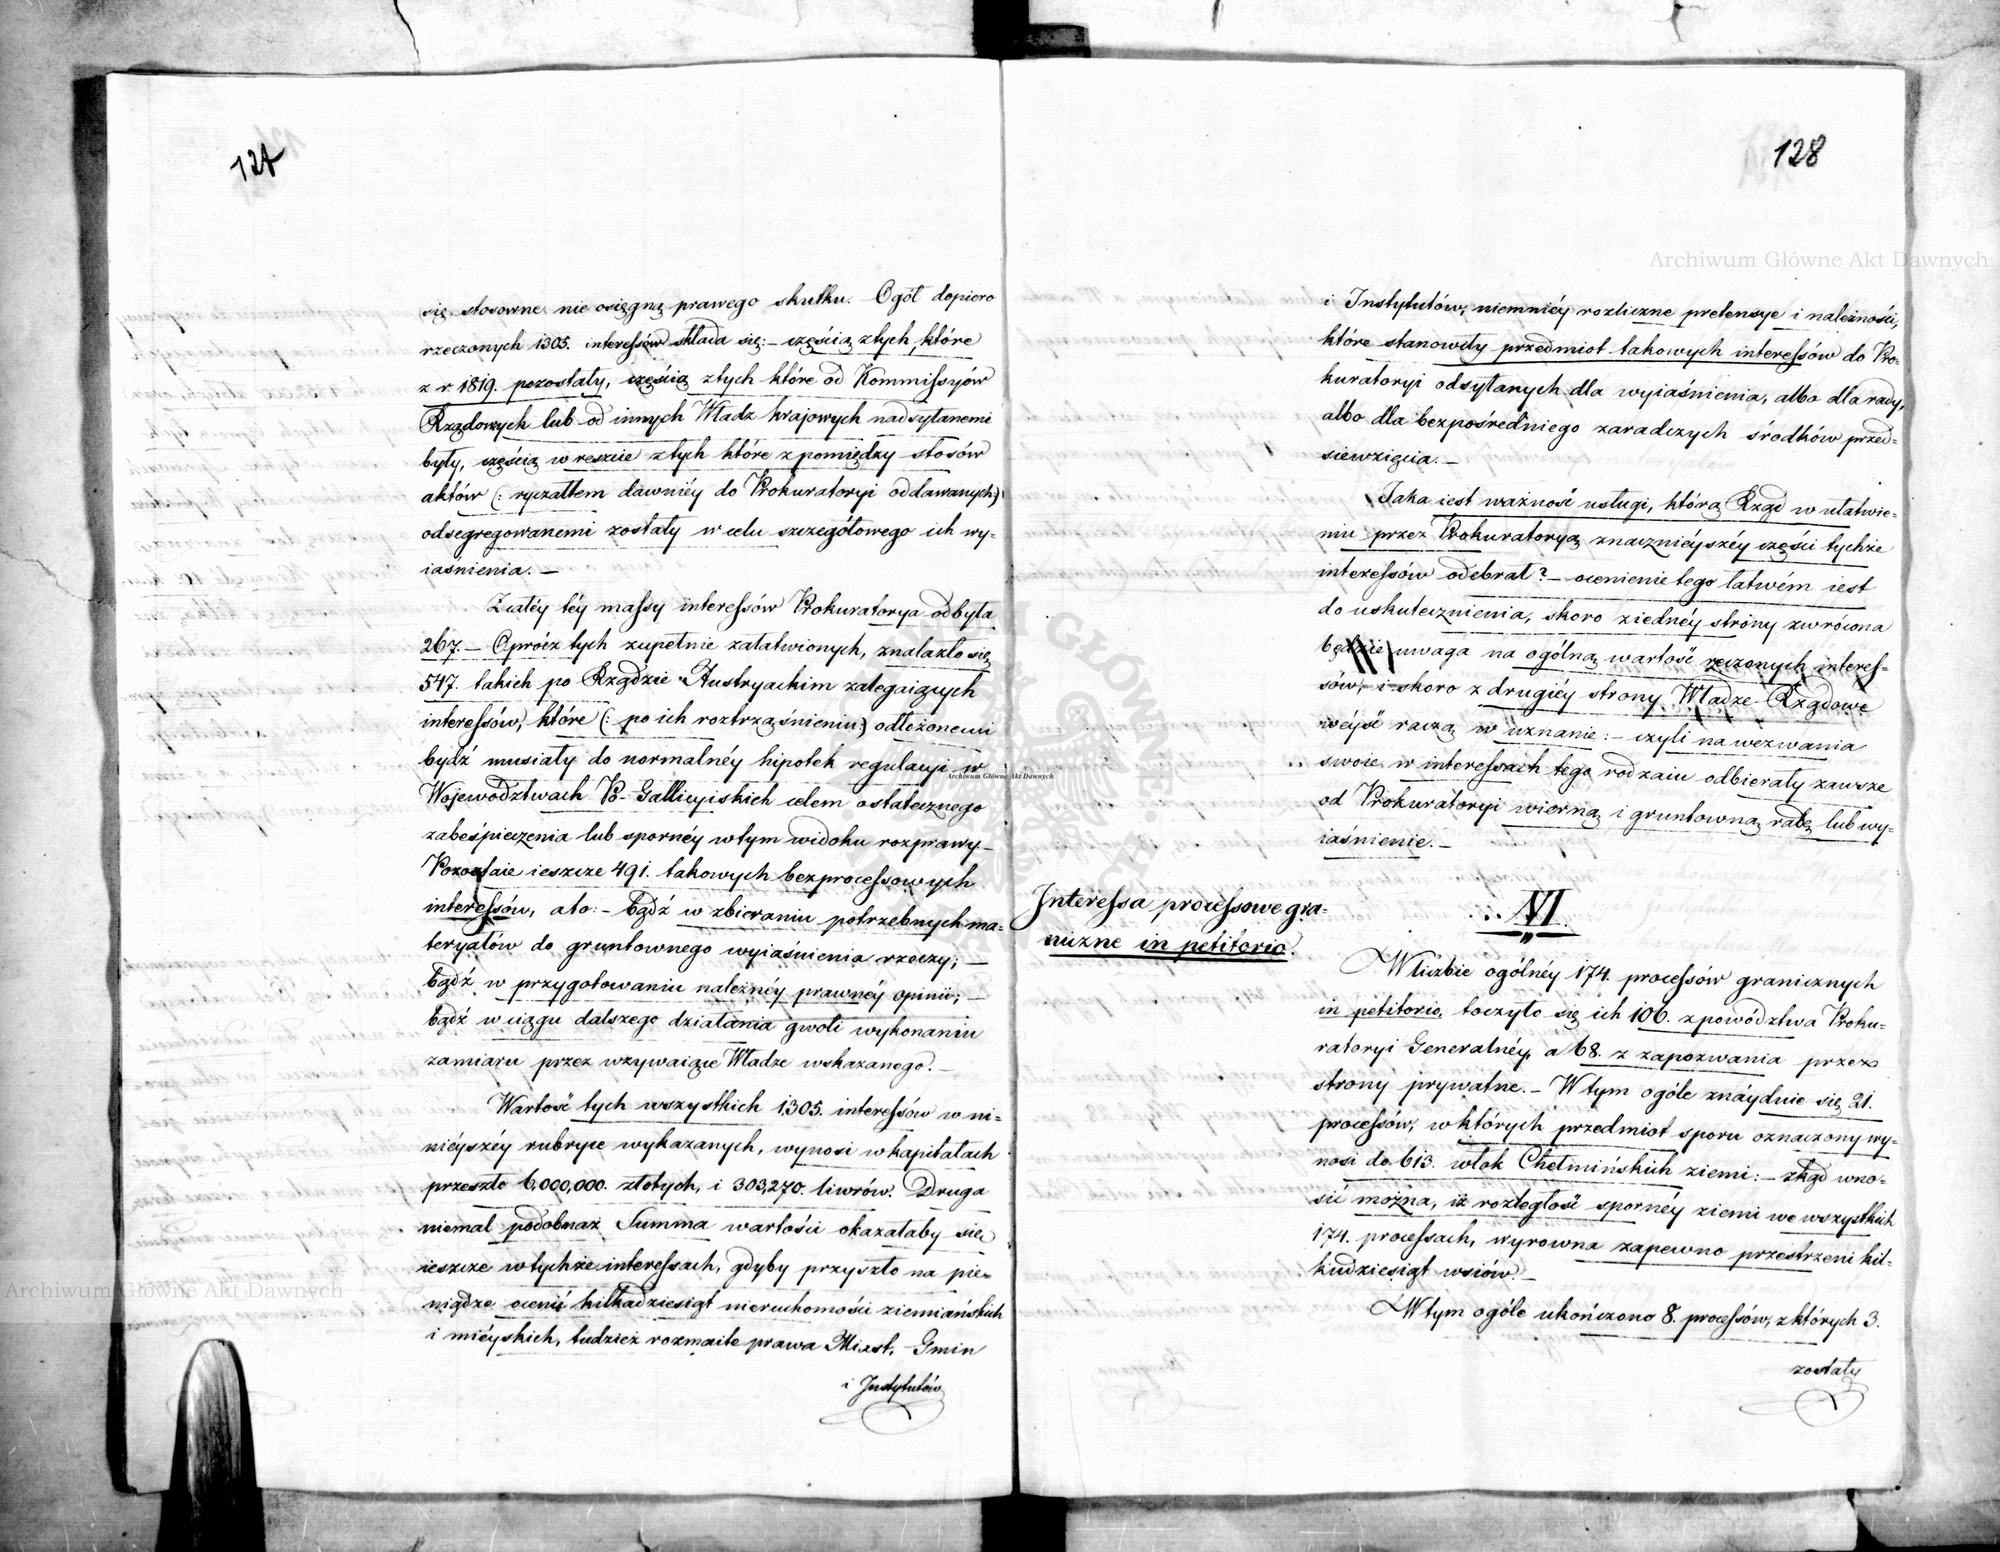 127
się stosowne nie osięgną prawego skutku. Ogół dopiero
rzeczonych 1305. interessów składa się: – częścią z tych, które
z r 1819. pozostały, częścią z tych które od Kommissyów
Rządowych lub od innych Władz krajowych nadsyłanemi
były, częścią wreszcie z tych które z pomiędzy stosów
aktów (: ryczałtem dawniéy do Prokuratoryi oddawanych:)
odsegregowanemi zostały w celu szczegółowego ich wy=
iaśnienia. –
Z całéy téy massy interessów Prokuratorya odbyła
267. – Oprócz tych zupełnie załatwionych, znalazło się
547. takich po Rządzie Austryackim zalegaiących
interessów, które (: po ich roztrząśnieniu:) odłożonemi
bydź musiały do normalnéy hipotek regulacyi w
Województwach Po-Gallicyiskich celem ostatecznego
zabeśpieczenia lub spornéy w tym widoku rozprawy –
Pozostaie ieszcze 491. takowych bezprocessowych
interessów, a to: – bądź w zbieraniu potrzebnych ma=
teryałów do gruntownego wyiaśnienia rzeczy; –
bądź w przygotowaniu należnéy prawnéy opinii; –
bądź w ciągu dalszego działania gwoli wykonaniu
zamiaru przez wzywaiące Władze wskazanego. –
Wartość tych wszystkich 1305. interessów w ni=
nieyszéy rubryce wykazanych, wynosi w kapitałach
przeszło 6,000,000. złotych, i 303,270. liwrów. Druga
niemal podobnaż Summa wartości okazałaby się
ieszcze w tychże interessach, gdyby przyszło na pie=
niądze ocenić kilkadziesiąt nieruchomości ziemiańskich
i mieyskich, tudzież rozmaite prawa Miast, Gmin
i Instytutów
128
i Instytutów, niemniéy rozliczne pretensye i należności,
które stanowiły przedmiot takowych interessów do Pro=
kuratoryi odsyłanych dla wyiaśnienia, albo dla rady,
albo dla bezpośredniego zaradczych środków przed=
siewzięcia. –
Jaka iest ważność usługi, którą Rząd w ułatwie=
niu przez Prokuratoryą znacznieyszéy części tychże
interessów odebrał? – ocenienie tego łatwém iest
do uskutecznienia, skoro z iednéy strony zwrócona
będzie uwaga na ogólną wartość rzeczonych interes=
sów, i skoro z drugiéy strony Władze Rządowe
weyść raczą w uznanie: – czyli na wezwania
swoie w interessach tego rodzaiu odbierały zawsze
od Prokuratoryi wierną i gruntowną radę lub wy=
iaśnienie. –
Interessa processowe gra=
niczne in petitorio.
VI.
W liczbie ogólnéy 174. processów granicznych
in petitorio, toczyło się ich 106. z powództwa Proku=
ratoryi Generalnéy, a 68. z zapozwania przez
strony prywatne. – W tym ogóle znáyduie się 21.
processów, w których przedmiot sporu oznaczony wy=
nosi do 613. włok Chełmińskich ziemi: – zkąd wno=
sić można, iż rozległość spornéy ziemi we wszystkich
174. processach, wyrowna zapewno przestrzeni kil=
kudziesiąt wsiów. –
W tym ogóle ukończono 8. processów, z których 3.
zostały
Archiwum Główne Akt Dawnych
Archiwum Główne Akt Dawnych
Archiwum Główne Akt Dawnych